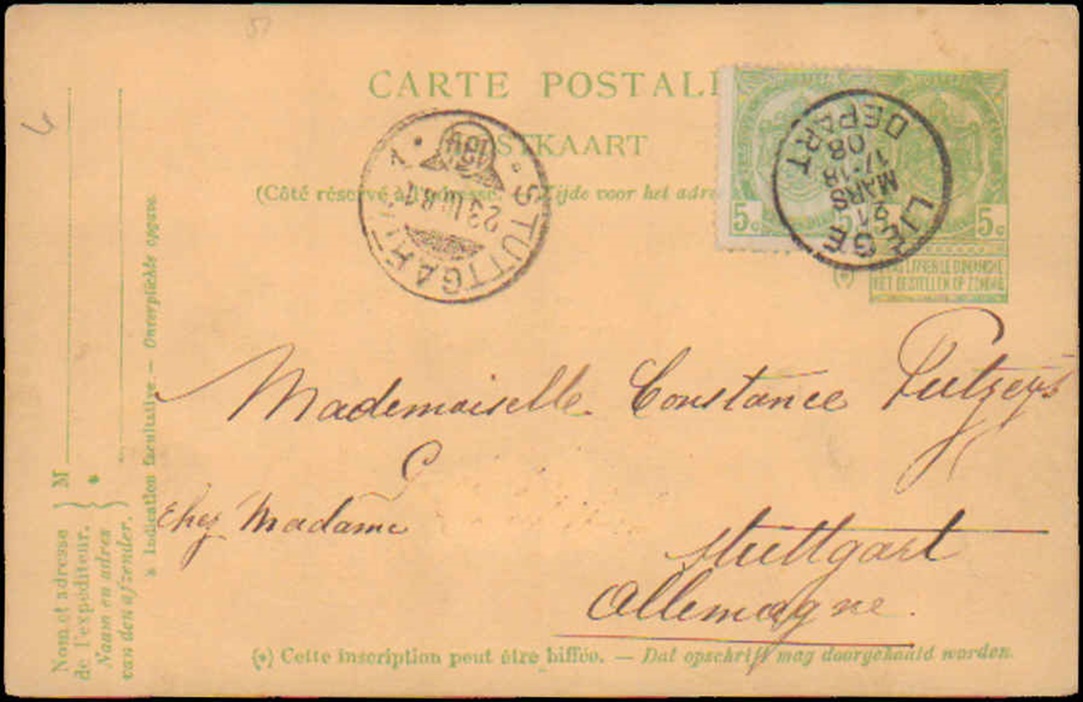 CARTE POSTALE
POSTKAART
(Côté réservé à l'adresse. Zijde voor het adres
5c 5c
LIÈGE
DEPART
21
MARS
17-18
08
STUTTGART
1
NE PAS LIVRER LE DIMANCHE
NIET BESTELLEN OP ZONDAG
(*)
Mademoiselle Constance Putzeys
Chez Madame
Stuttgart
Allemagne.
(*) Cette inscription peut être biffée. — Dat opschrift mag doorgehaald worden.
M *
Nom et adresse
de l'expéditeur.
Naam en adres
van den afzender.
* Indication facultative. — Onverplichte opgave.